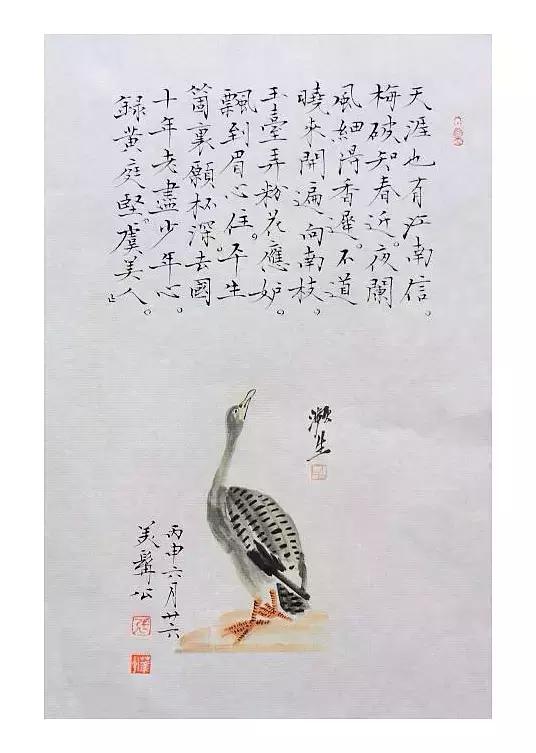 天涯也有江南信。
梅破知春近。夜闌
風細得香遲。不道
曉来開遍向南枝。
玉臺弄粉花應妒。
飄到眉心住。平生
箇裏願杯深。去國
十年老盡少年心。
録黄庭堅。虞美人。
漱生
丙申六月廿六
美髯公